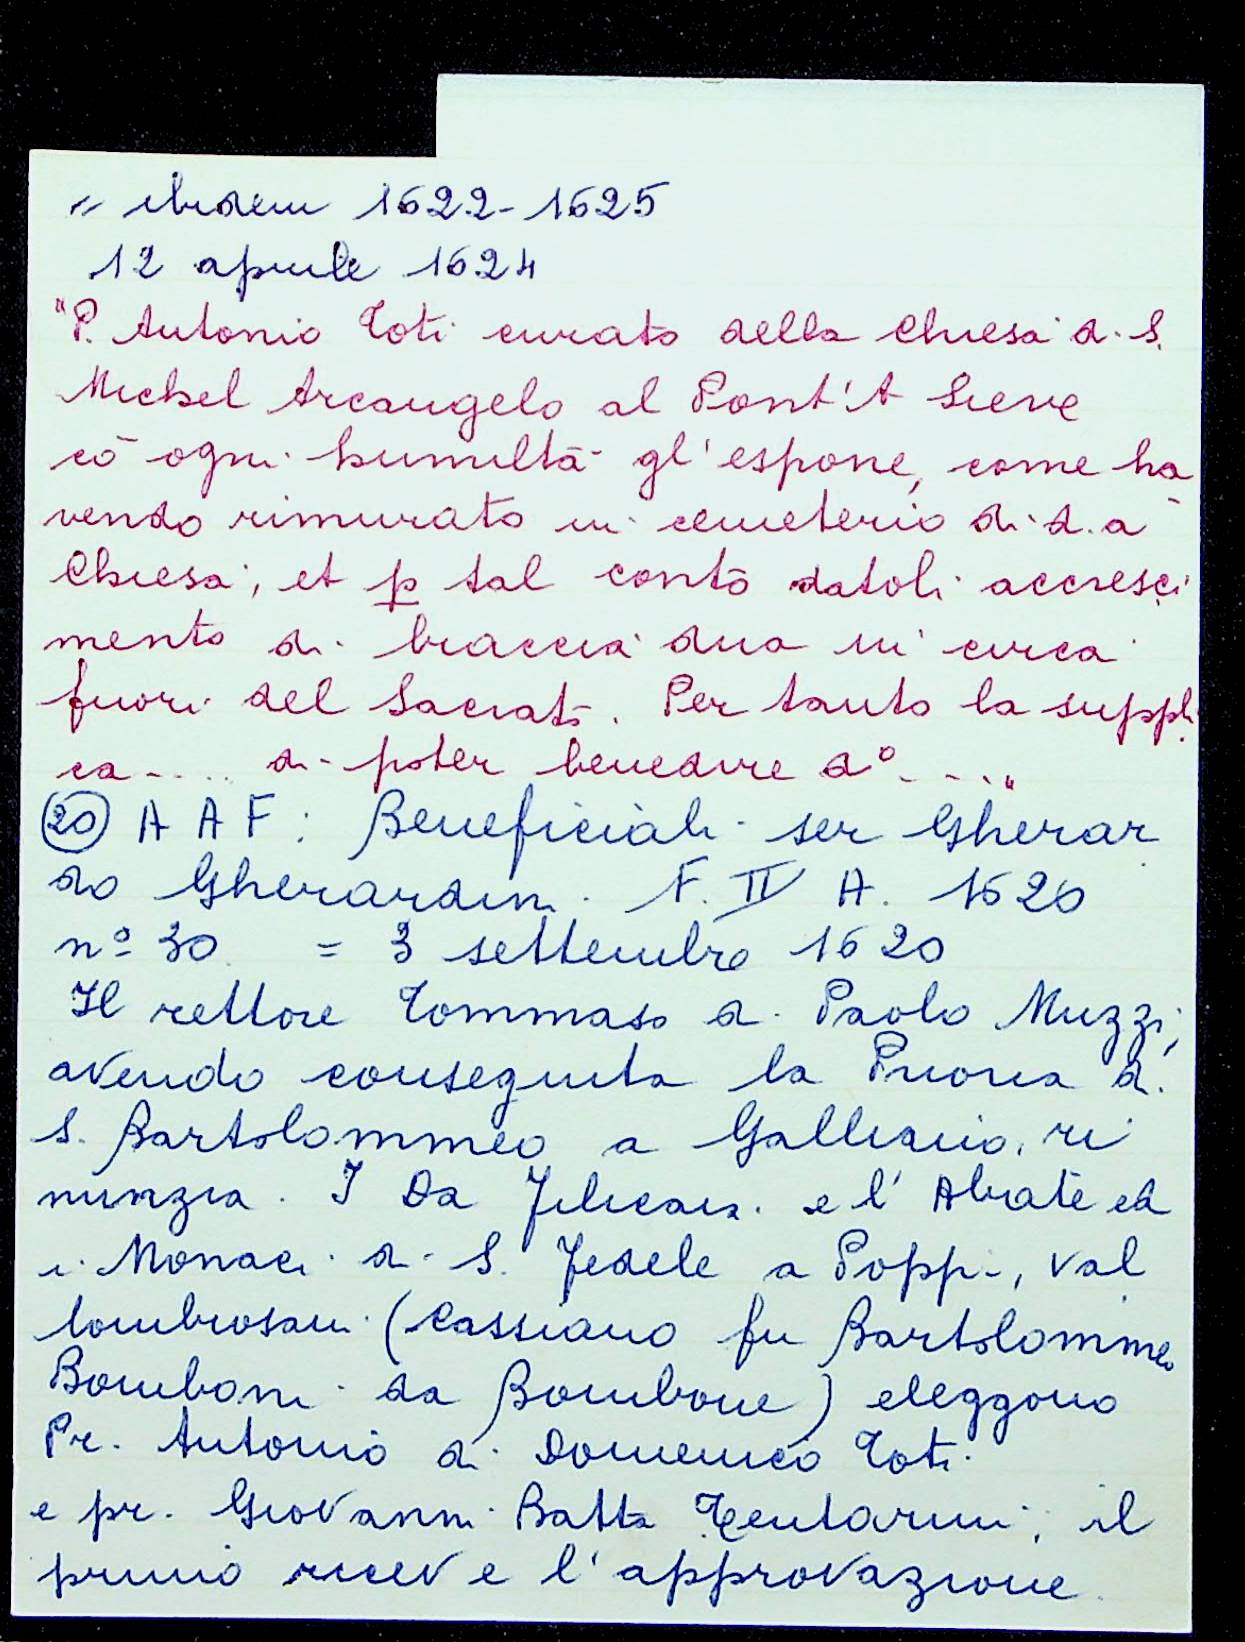 " ibidem 1622-1625
12 aprile 1624
"P. Antonio Toti curato della Chiesa di S.
Michel Arcangelo al Pont'A Sieve
cō ogni humiltà gl'espone, come ha
vendo rimurato un cemeterio di d.a
Chiesa, et p tal conto datoli accresci
mento di braccia dua in circa
fuori del Sacrato. Per tanto la suppli
ca.... di poter benedire dº...."
(20) A A F: Beneficiali ser Gherar
do Gherardini. F. II A. 1620
nº 30 = 3 settembre 1620
Il rettore Tommaso di Paolo Muzzi,
avendo conseguita la Prioria di
S. Bartolommeo a Galliano, ri
nunzia. I Da Filicaia e l'Abate ed
i Monaci di S. Fedele a Poppi, val
lombrosani (Cassiano fu Bartolommeo
Bomboni da Bombone) eleggono
Pr. Antonio di Domenico Toti
e pr. Giovanni Batta Tentarini; il
primo riceve l'approvazione.